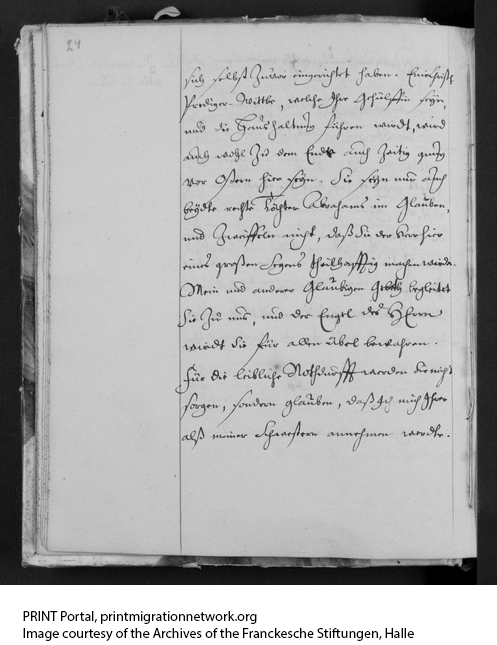 24
sich selbst zuvor eingerichtet haben. Eine Christl.
Prediger-Wittbe, welche Ihre Gehülffin seyn,
und die Haußhaltung führen wirdt, wird
auch wohl zu dem Ende auch zeitig gnug
vor Ostern hier seyn. Sie seyn nur auch
beyde rechte Töchter Abrahams im Glauben,
und zweiffeln nicht, daß Sie der Herr hier
eines großen Segens theilhafftig machen werde.
Mein und anderer Gläubigen Gebeth begleitet
Sie zu uns, und der Engel des HErrn
wirdt Sie für allen Übel bewahren.
Für die leibliche Nothdurfft werden Sie nicht
sorgen, sondern glauben, daß Ich mich Ihrer
alß meiner Schwestern annehmen werde.
PRINT Portal, printmigrationnetwork.org
Image courtesy of the Archives of the Franckesche Stiftungen, Halle